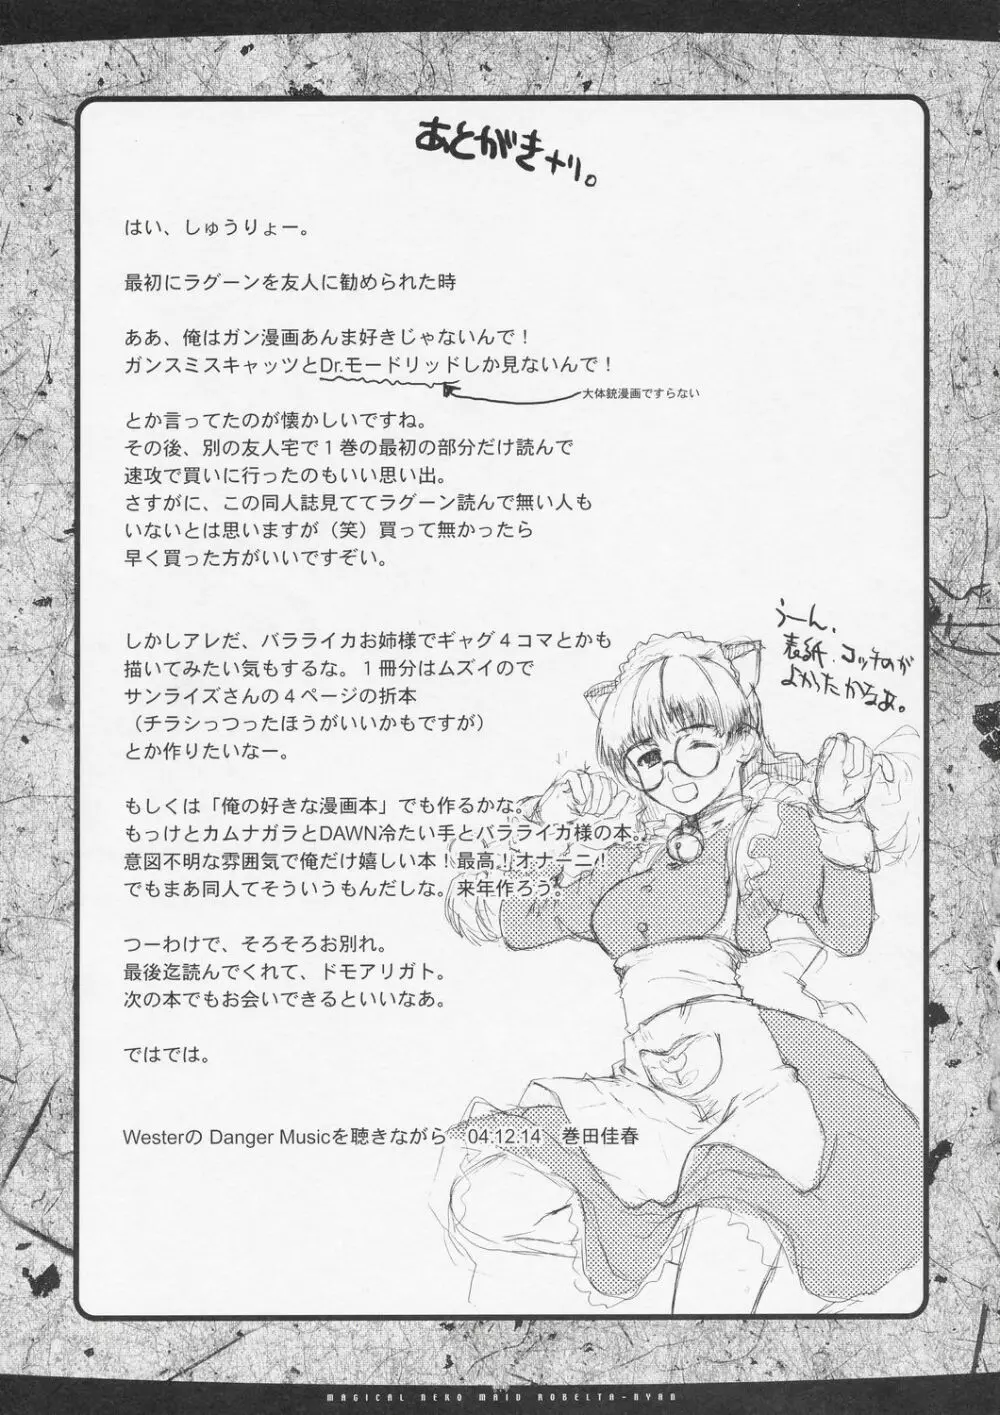 あとがきナリ。
はい、しゅうりょー。
最初にラグーンを友人に勧められた時
ああ、俺はガン漫画あんま好きじゃないんで！
ガンスミスキャッツとDr.モードリッドしか見ないんで！
大体銃漫画ですらない
とか言ってたのが懐かしいですね。
その後、別の友人宅で１巻の最初の部分だけ読んで
速攻で買いに行ったのもいい思い出。
さすがに、この同人誌見ててラグーン読んで無い人も
いないとは思いますが（笑）買って無かったら
早く買った方がいいですぞい。
しかしアレだ、バラライカお姉様でギャグ４コマとかも
描いてみたい気もするな。１冊分はムズイので
サンライズさんの４ページの折本
（チラシっつったほうがいいかもですが）
とか作りたいなー。
うーん、
表紙、コッチのが
よかったかなぁ。
もしくは「俺の好きな漫画本」でも作るかな。
もっけとカムナガラとDAWN冷たい手とバラライカ様の本。
意図不明な雰囲気で俺だけ嬉しい本！最高！オナーニ！
でもまあ同人てそういうもんだしな。来年作ろう。
つーわけで、そろそろお別れ。
最後迄読んでくれて、ドモアリガト。
次の本でもお会いできるといいなあ。
ではでは。
Westerの Danger Musicを聴きながら　04.12.14　巻田佳春
MAGICAL NEKO MAID ROBELTA-NYAN